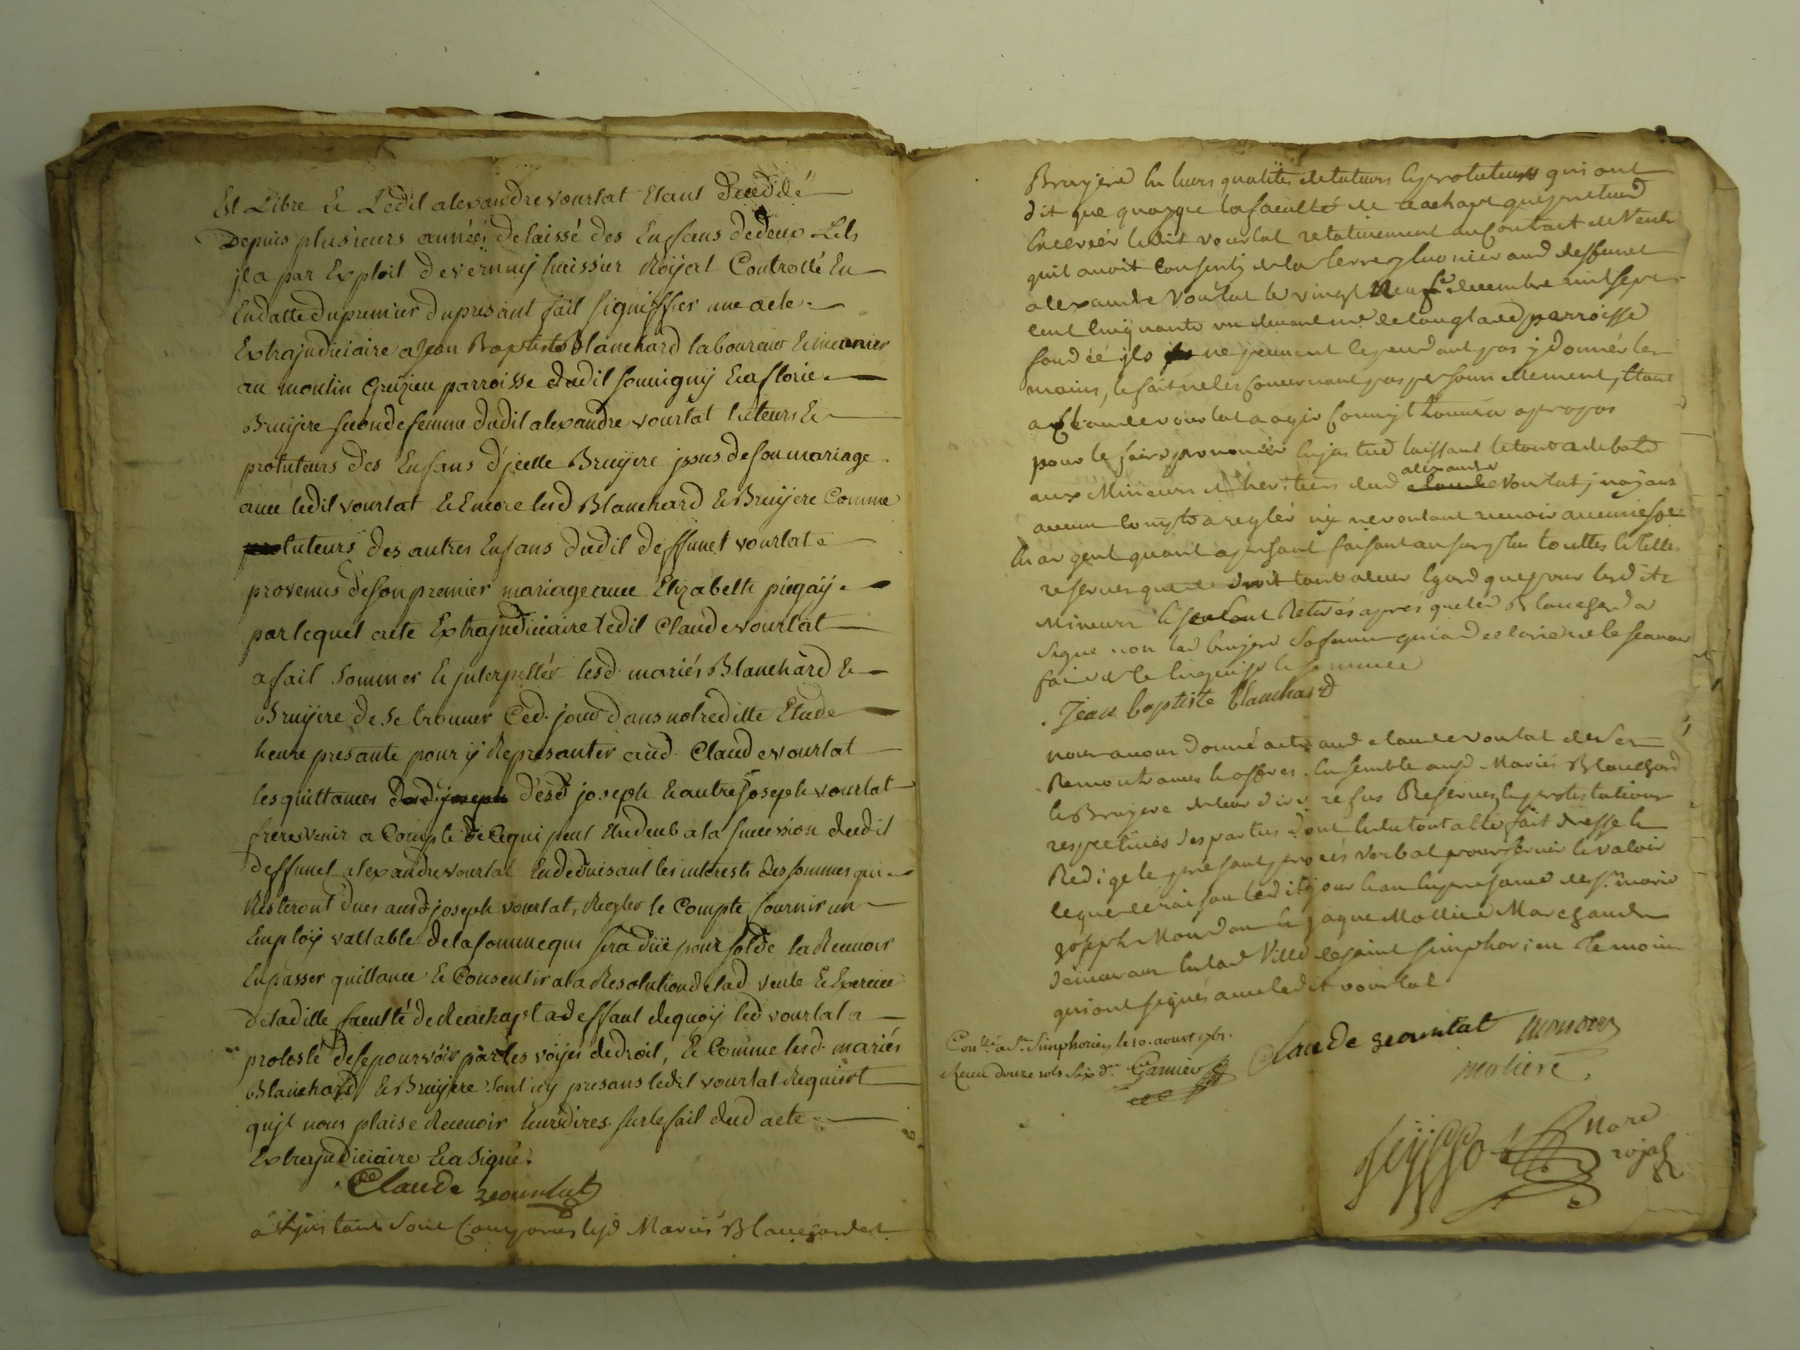 Est Libre Et Ledit alexandre vourlat Etant decedé
Depuis plusieurs années delaissé des Enfans de deux Lits
jl a par Exploit de vernay huissier Royal Controllé En
Endatte du premier du presant fait signiffier une acte
Extrajudiciaire a Jean Baptiste Blanchard laboureur Et meunier
au moulin parroisse dudit souvigny Et a florie
Bruyere seconde femme dudit alexandre vourlat tuteurs Et
protuteurs des Enfans d'jcelle Bruyere jssus de son mariage
avec ledit vourlat Et Encore lesd Blanchard Et Bruyere Comme
tuteurs des autres Enfans dudit deffunct vourlat
provenus de son premier mariage avec Elizabeth pingay
par lequel acte Extrajudiciaire ledit Claude vourlat
a fait sommer Et jnterpeller lesd. mariés Blanchard Et
Bruyere de se trouver Ced. jour dans notreditte Etude
heure presante pour y Representer aud. Claude vourlat
les quittances dud joseph desd joseph Et autre joseph vourlat
freres venir a Compte de Ce qui peut Etre deub a la succession dudit
deffunct alexandre vourlat En deduisant les interests des sommes qui
Resteront dues aud joseph vourlat, Regler le Compte fournir un
Employ vallable de la somme qui sera düe pour solde la Recevoir
En passer quittance Et Consentir a la Resolution de lad. vente Et Exercice
de laditte faculté de Reachapt a deffaut de quoy led vourlat a
protesté de se pourvoir par les voyes de droit, Et Comme lesd. mariés
Blanchard Et Bruyere sont jcy presans ledit vourlat Requiert
qu'jl nous plaise Recevoir leurs dires sur le fait dud acte
Extrajudiciaire Et a signé.
Claude vourlat
a l'jnstant sont Comparus lesd Mariés Blanchard et
Bruyere En leurs qualités de tuteurs Et protuteurs qui ont
dit que quoyque la faculté de reachapt que pretend
Exercer ledit vourlat relativement au Contract de Vente
quil avoit Consenti de la terre aud deffunct
alexandre Vourlat le vingt Neuf decembre mil sept
cent Cinquante un devant me de parroisse
fondée jls ne peuvent Cependant pas y donner les
mains, le fait ne les Concernant pas personnellement, Etant
a Claude vourlat a agir Comm'jl trouvera apropos
pour le faire prononcer En justice laissant le tout a debatre
aux Mineurs Et heritiers dud alexandre claude vourlat, n'ayant
aucun Compte a regler ny ne voulant recevoir aucune
En argent quant a presant faisant au surplus touttes Et telles
reserves que de droit tant a leur Egard que pour lesdits
Mineurs Et se sont Retirés aprés que led Blanchard a
signé non lad bruyere sa femme qui a declaré ne le scavoir
faire de le Enquise Et sommée
Jean baptiste blanchard
nous avons donné acte aud claude vourlat de ses
Remontrances Et offres. Ensemble ausd. Mariés Blanchard
Et Bruyere de leur dire, refus Reserves Et protestations
respectives des parties dont du tout a Eté fait dressé Et
Redigé le present procés verbal pour servir Et valoir
le que de raison ledit jour En presance de sr. marie
joseph Mondon Et jaque Moliere Marchands
demeurans En lad Ville de saint simphorien temoins
qui ont signés avec ledit vourlat
Conllé. a St. Simphorien le 10. aoust 1761.
Receu douze sols six drs. Garnier
Claude vourlat mondon
moliere
nore
rojal